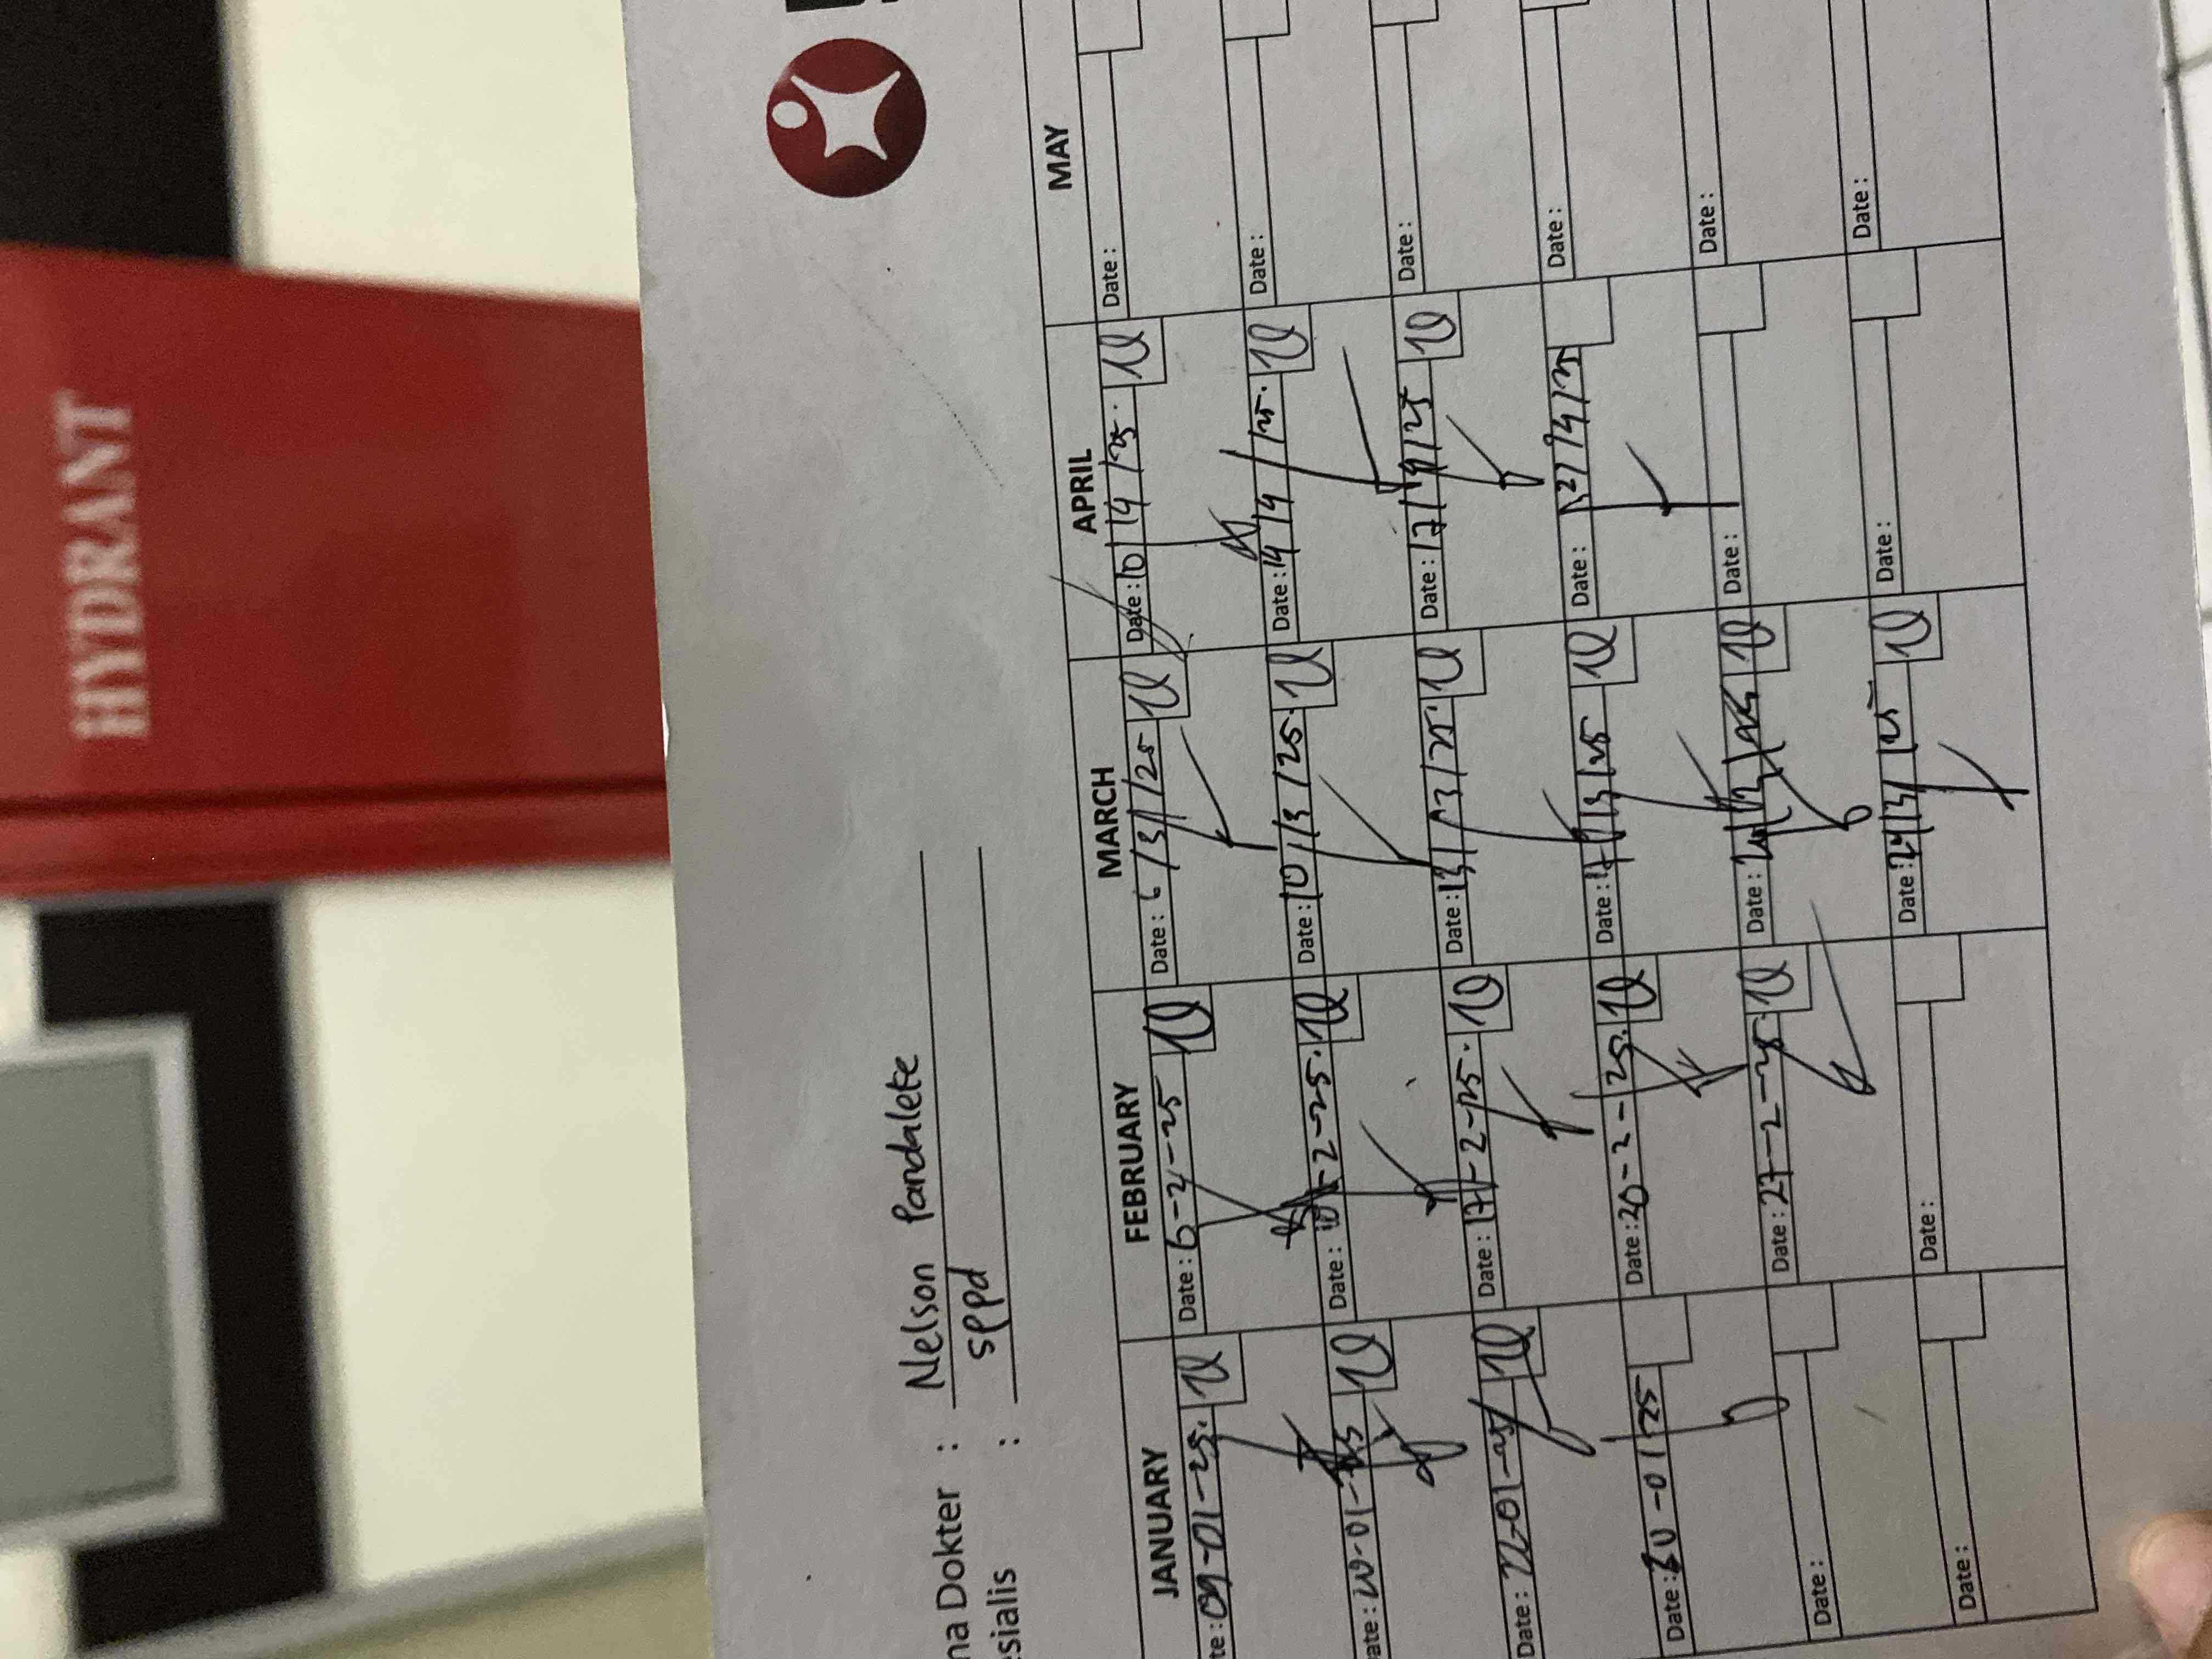 HYDRANT
na Dokter : Nelson Pandalete
sialis : sppd
JANUARY FEBRUARY MARCH APRIL MAY
te : 09-01-25. Date : 6-2-25 Date : 6/3/25 Date : 10/4/25. Date :
ate : 20-01-25 Date : 10-2-25. Date : 10/3/25. Date : 14/4/25. Date :
Date : 22-01-25 Date : 17-2-25. Date : 13/3/25. Date : 17/4/25 Date :
Date : 30-01/25 Date : 20-2-25. Date : 17/3/25 Date : Date :
Date : Date : 27-2-25 Date : Date : Date :
Date : Date : Date : 24/3/25 Date : Date :